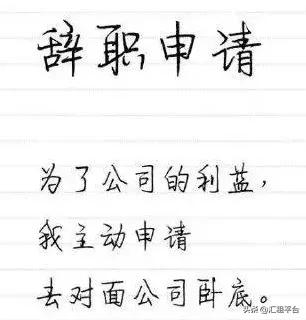 辞职申请
为了公司的利益,
我主动申请
去对面公司卧底。
头条@汇趣平台